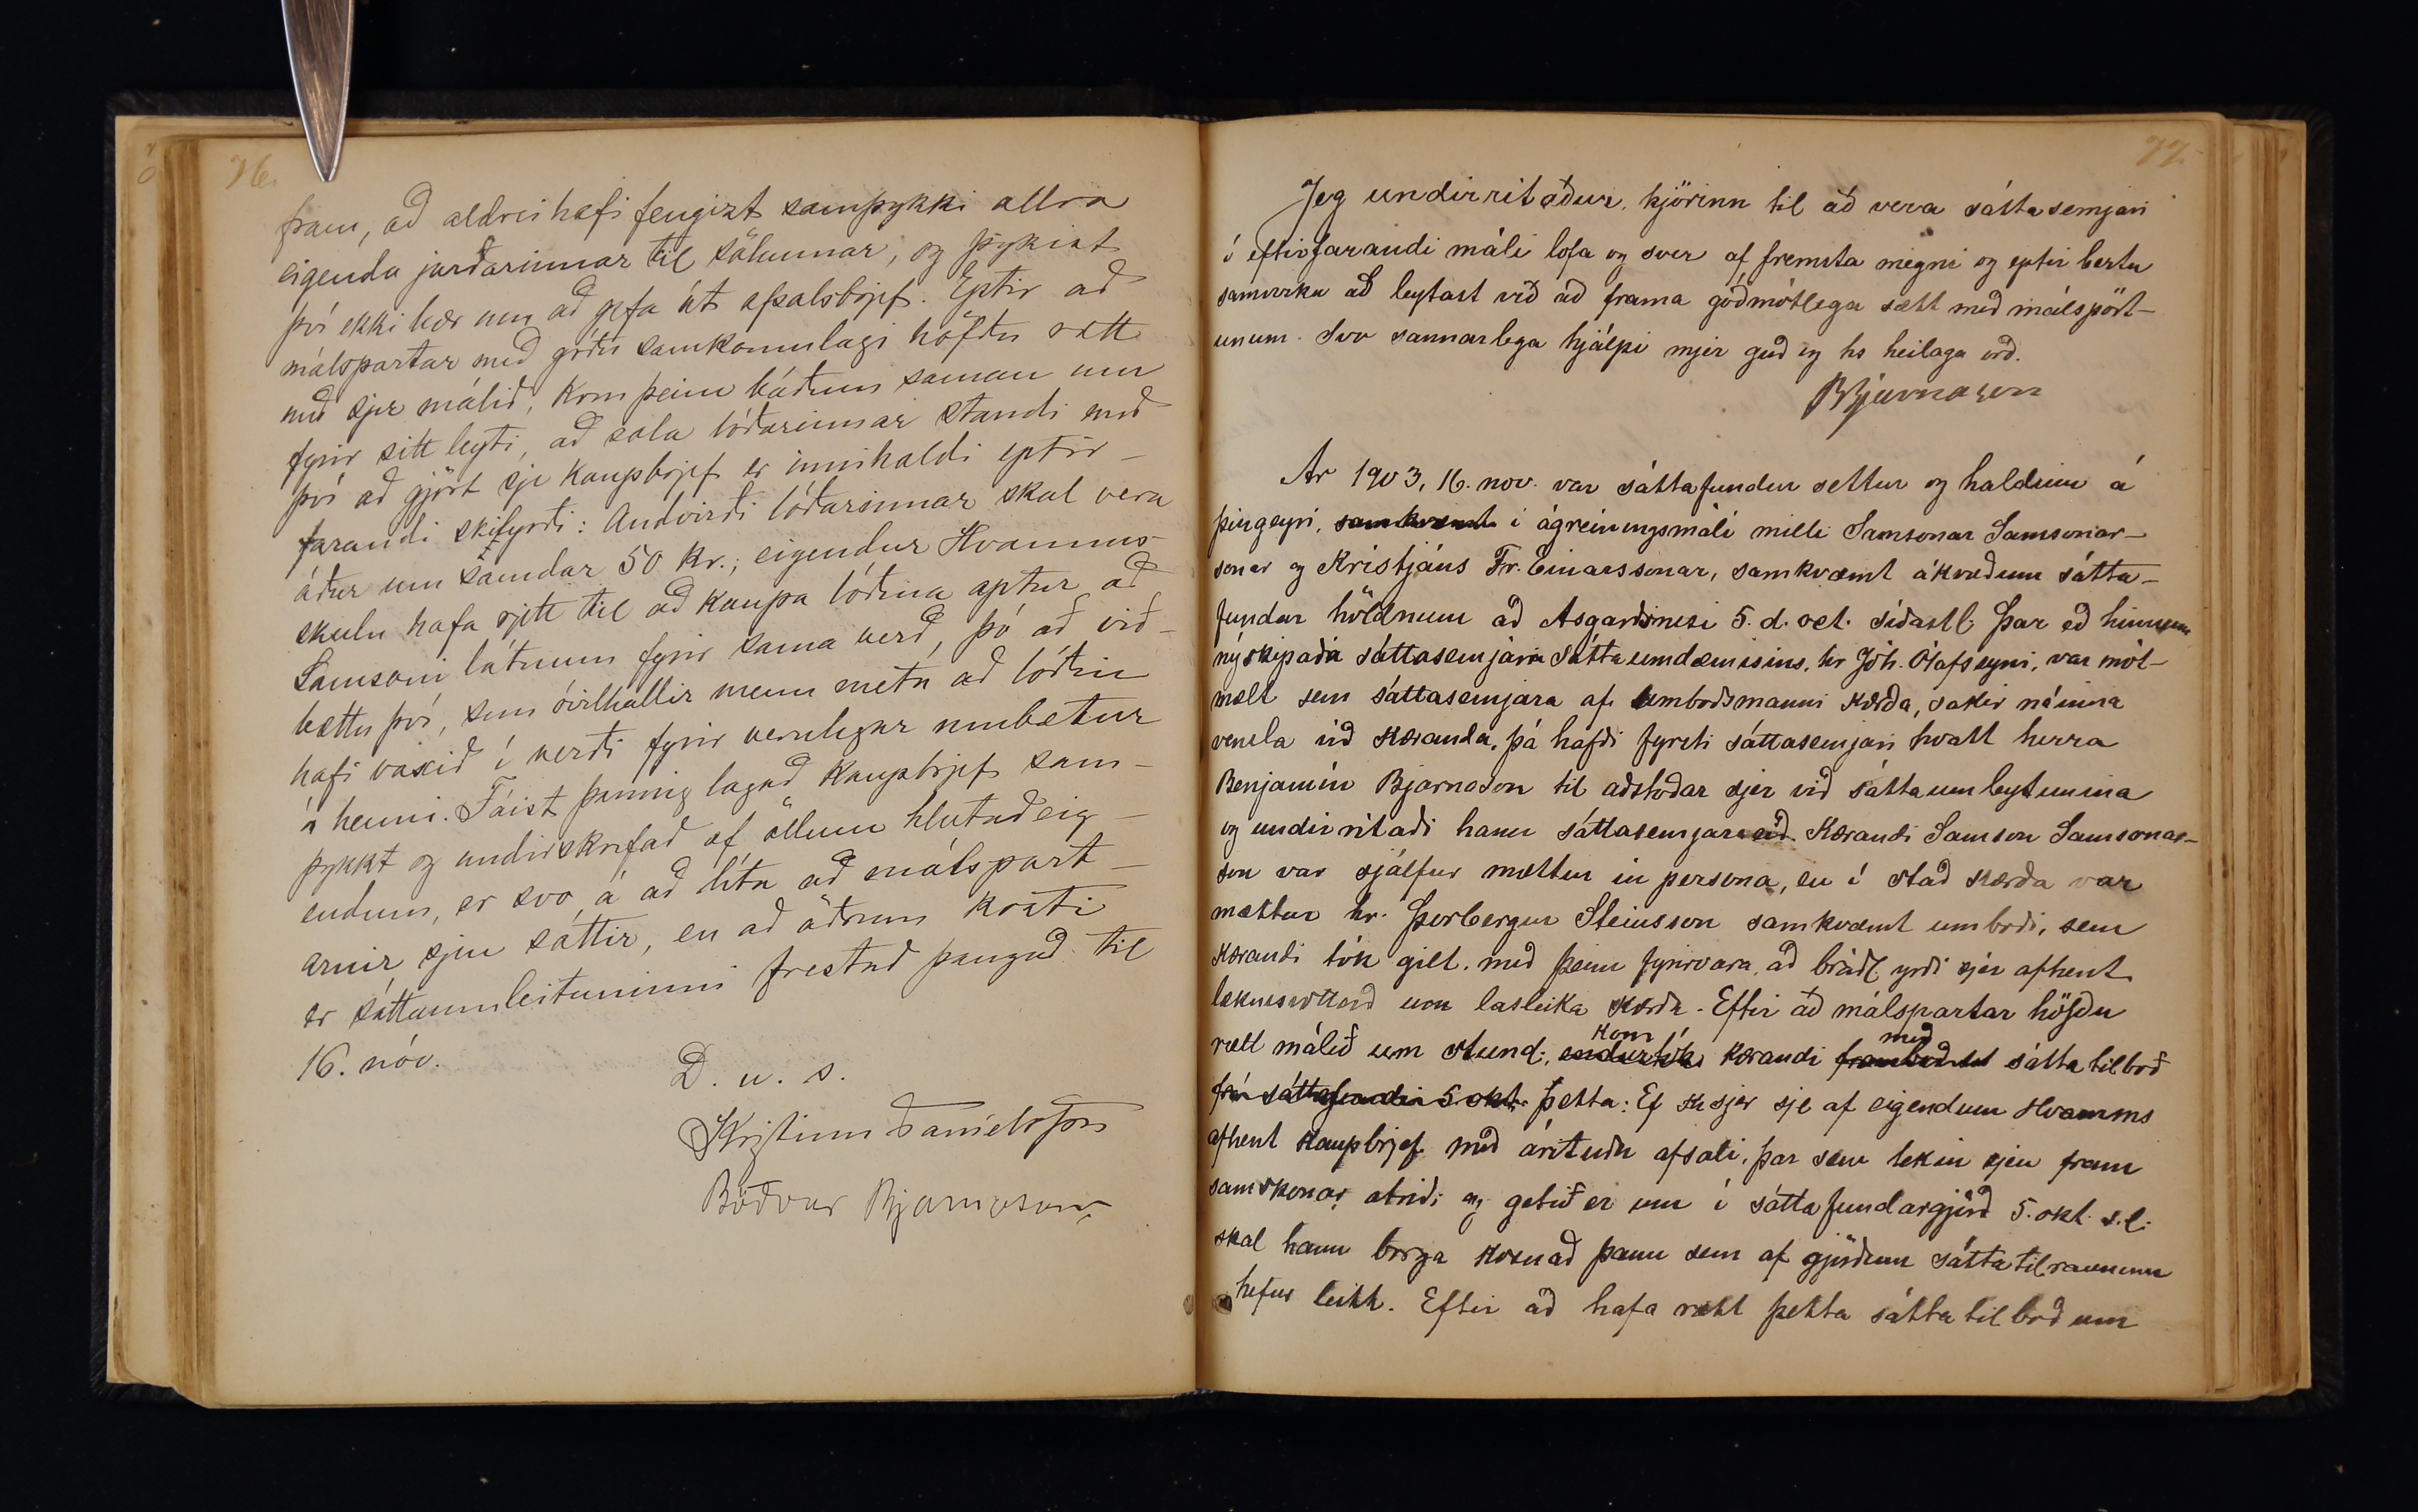 76.
fram, að aldrei hafi fengizt samþykki allra
eigenda jarðarinnar til sölunnar, og þykist
því ekki bær um að gefa út afsalsbrjef. Eptir að
málspartar með góðu samkomulagi höfðu rætt
með sjer málið, kom þeim báðum saman um
fyrir sitt leyti, að sala lóðarinnar standi með
því að gjört sje kaupbrjef er innihaldi eptir-
farandi skilyrði: Andvirði lóðarinnar skal vera
áður um samdar 50 kr.; eigendur Hvamms
skulu hafa rjett til að kaupa lóðina aptur að
Samsoni látnum fyrir sama verð, þó að við-
bættu því, sem óvilhallir menn meta að lóðin
hafi vaxið í verði fyrir verulegar umbætur
á henni. Fáist þannig lagað kaupbrjef sam-
þykkt og undirskrifað af öllum hlutaðeig-
endum, er svo á að líta að málspart-
arnir sjeu sáttir, en að öðrum kosti
er sáttaumleituninni frestað þangað til
16. nóv.
D. u. s.
Kristinn Daníelsson
Böðvar Bjarnason
77.
Jeg undirritaður, kjörinn til að vera sáttasemjari
í eftirfarandi máli lofa og sver af fremsta megni og eptir bestu
samvizku að leytast við að frama góðmótlega sætt með málspört-
unum. Svo sannarlega hjálpi mjer guð og hs heilaga orð.
BBjarnason
Ár 1903, 16. nov. var sáttafundur settur og haldinn á
þingeyri, samkvæmt í ágreiningsmáli milli Samsonar Samsonar-
sonar og Kristjáns Fr. Einarssonar, samkvæmt ákvæðum sátta-
fundar höldnum að Asgarðsnesi 5. d. oct. síðastl. Þar eð hinum
nýskipaða sáttasemjara sáttaumdæmisins, hr Jóh. Ólafssyni, var mót-
mælt sem sáttasemjara af umboðsmanni kærða, sakir náinna
vensla við kæranda, þá hafði fyrsti sáttasemjari kvatt herra
Benjamín Bjarnason til aðstoðar sjer við sáttaumleytunina
og undirritaði hann sáttasemjaraeið. Kærandi Samson Samsonar-
son var sjálfur mættur in persona, en í stað kærða var
mættur hr. Þorbergur Steinsson samkvæmt umboði, sem
kærandi tók gilt, með þeim fyrirvara, að bráðl. yrði sjer afhent
læknisvottorð um lasleika kærða. Eftir að málspartar höfðu
rætt málið um stund, endurtók kærandi framboðið sáttatilboð
kom
með
frá sáttafundi 5. okt. þetta: Ef sjer sje af eigendum Hvamms
afhent kaupbrjef með árituðu afsali, þar sem tekin sjeu fram
samskonar atriði og getið er um í sáttafundargjörð 5. okt. s.l.
skal hann borga kosnað þann sem af gjörðum sáttatilraunum
hefur leitt. Eftir að hafa rætt þetta sáttatilboð um